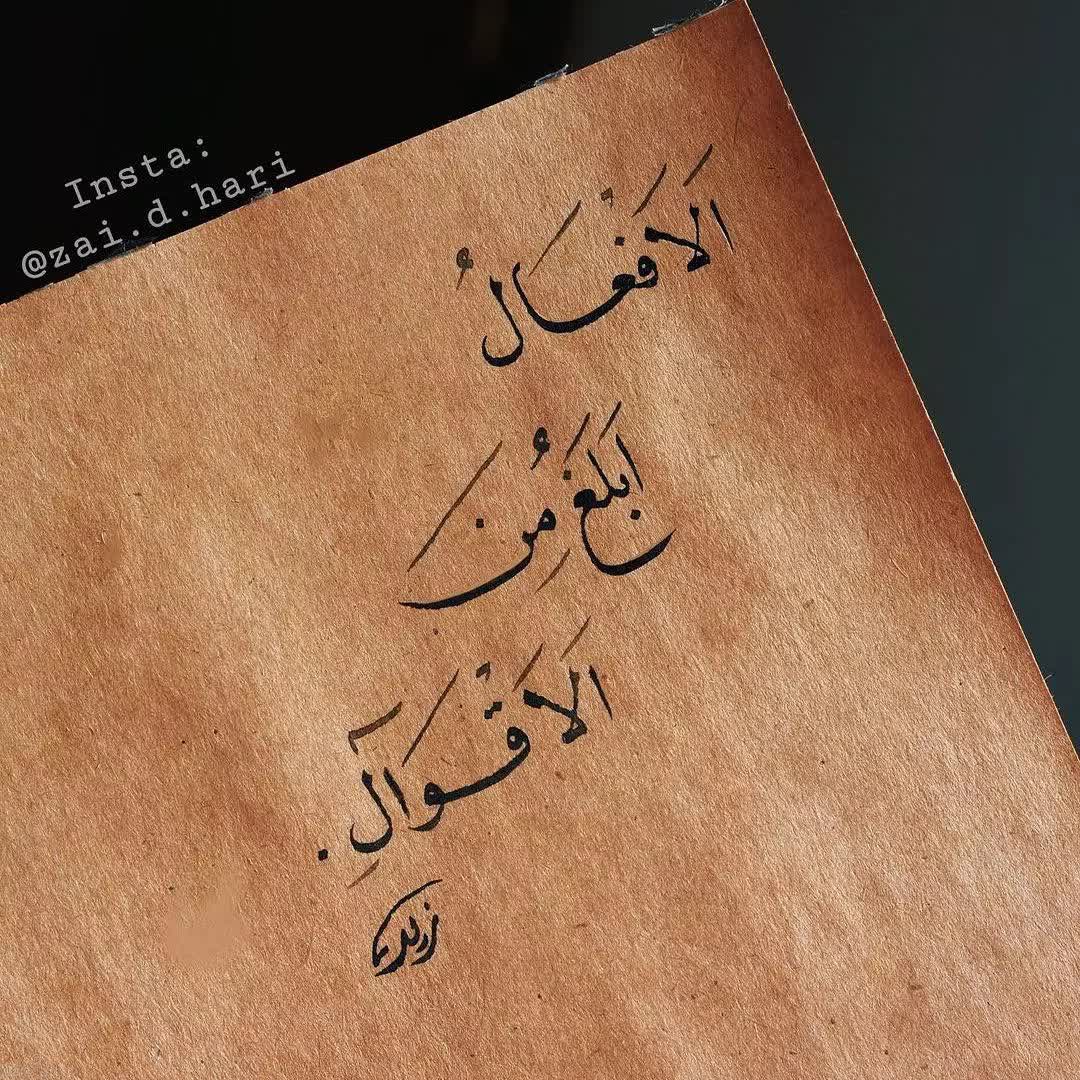 Insta:
@zai.d.hari
الَاَفْعَالُ
اَبلَغَ مُن
الَاَقْوَالِ.